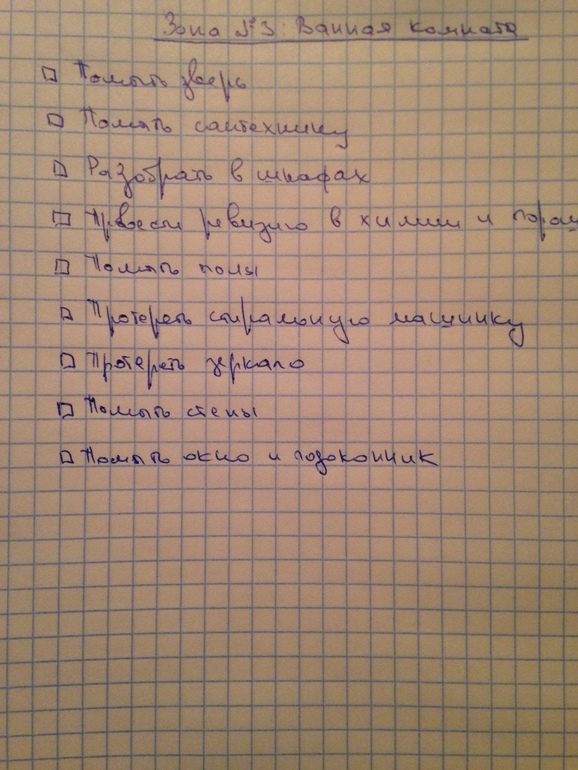 Зона №3: Ванная комната
Помыть дверь
Помыть сантехнику
Разобрать в шкафах
Првести ревизию в химии и порош
Помыть полы
Протереть стиральную машинку
Протереть зеркало
Помыть стены
Помыть окно и подоконник